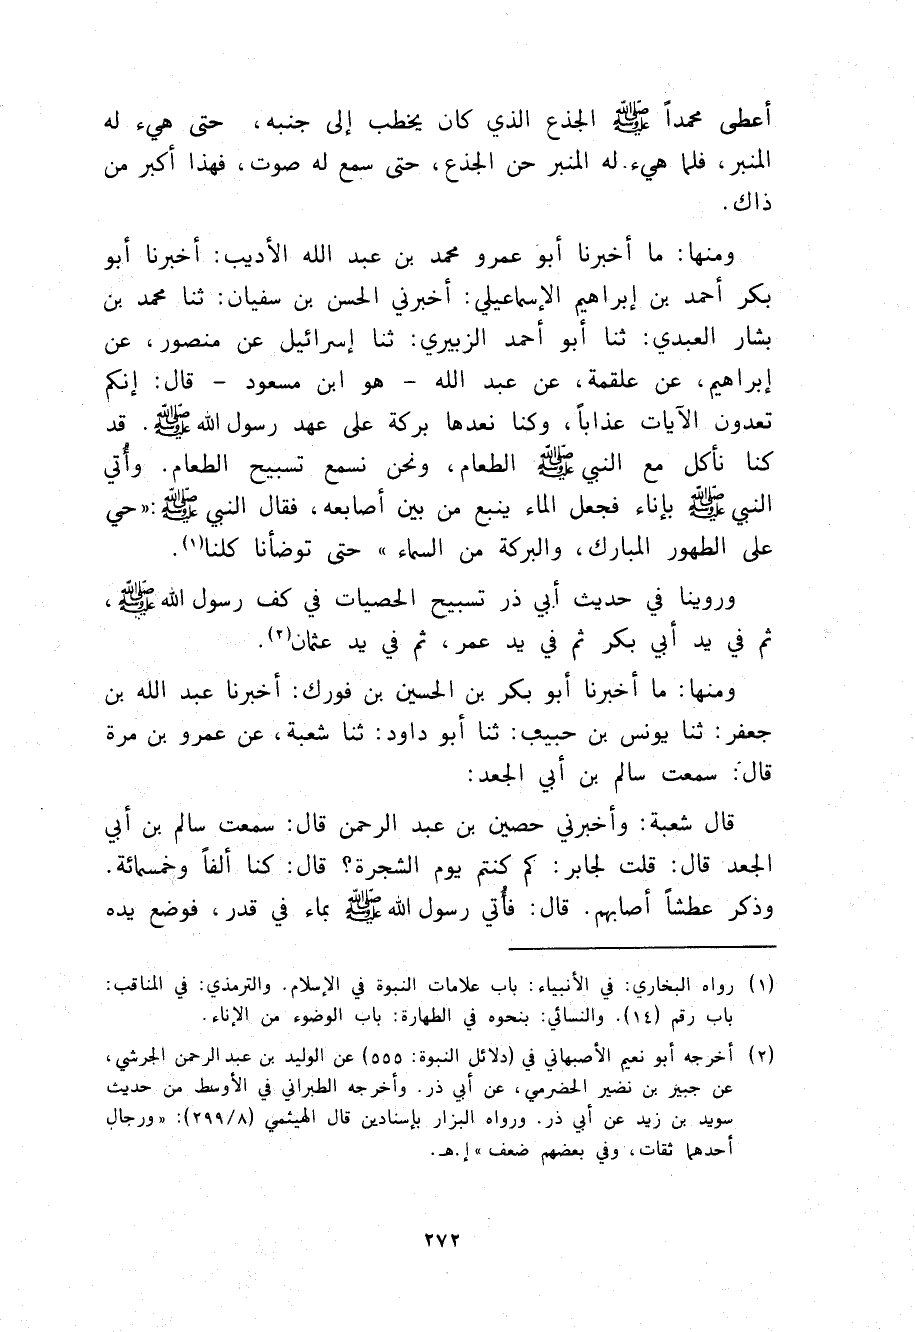 أعطى محمداً ﷺ الجذع الذي كان يخطب إلى جنبه، حتى هيء له
المنبر، فلما هيء له المنبر حن الجذع، حتى سمع له صوت، فهذا أكبر من
ذاك.
ومنها: ما أخبرنا أبو عمرو محمد بن عبد الله الأديب: أخبرنا أبو
بكر أحمد بن إبراهيم الإسماعيلي: أخبرني الحسن بن سفيان: ثنا محمد بن
بشار العبدي: ثنا أبو أحمد الزبيري: ثنا إسرائيل عن منصور، عن
إبراهيم، عن علقمة، عن عبد الله - هو ابن مسعود - قال: إنكم
تعدون الآيات عذاباً، وكنا نعدها بركة على عهد رسول الله ﷺ. قد
كنا نأكل مع النبي ﷺ الطعام، ونحن نسمع تسبيح الطعام. وأُتي
النبي ﷺ بإناء فجعل الماء ينبع من بين أصابعه، فقال النبي ﷺ: «حي
على الطهور المبارك، والبركة من السماء» حتى توضأنا كلنا(١).
وروينا في حديث أبي ذر تسبيح الحصيات في كف رسول الله ﷺ،
ثم في يد أبي بكر ثم في يد عمر، ثم في يد عثمان(٢).
ومنها: ما أخبرنا أبو بكر بن الحسين بن فورك: أخبرنا عبد الله بن
جعفر: ثنا يونس بن حبيب: ثنا أبو داود: ثنا شعبة، عن عمرو بن مرة
قال: سمعت سالم بن أبي الجعد:
قال شعبة: وأخبرني حصين بن عبد الرحمن قال: سمعت سالم بن أبي
الجعد قال: قلت لجابر: كم كنتم يوم الشجرة؟ قال: كنا ألفاً وخمسمائة.
وذكر عطشاً أصابهم. قال: فأُتي رسول الله ﷺ بماء في قدر، فوضع يده
(١) رواه البخاري: في الأنبياء: باب علامات النبوة في الإسلام. والترمذي: في المناقب:
باب رقم (١٤). والنسائي: بنحوه في الطهارة: باب الوضوء من الإناء.
(٢) أخرجه أبو نعيم الأصبهاني في (دلائل النبوة: ٥٥٥) عن الوليد بن عبد الرحمن الجرشي،
عن جبير بن نضير الحضرمي، عن أبي ذر. وأخرجه الطبراني في الأوسط من حديث
سويد بن زيد عن أبي ذر. ورواه البزار بإسنادين قال الهيثمي (٢٩٩/٨): «ورجال
أحدهما ثقات، وفي بعضهم ضعف» إ.هـ.
٢٧٢